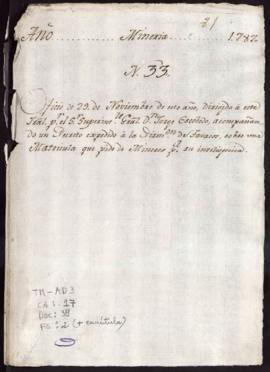 21
Año Mineria 1787
N. 33.
Oficio de 29. de Noviembre de este año, dirigido à este
Real. pr. el Sr. Superint.te Gral. Dn. Jorge Escobedo, acompañan-
do un Decreto expedido à la Diputn. de sobre una
Matricula que pide de Mineros pa. su inteligencia.
TM-AD3
C: 17
Doc: 38
Fs: 2 (+ carátula)